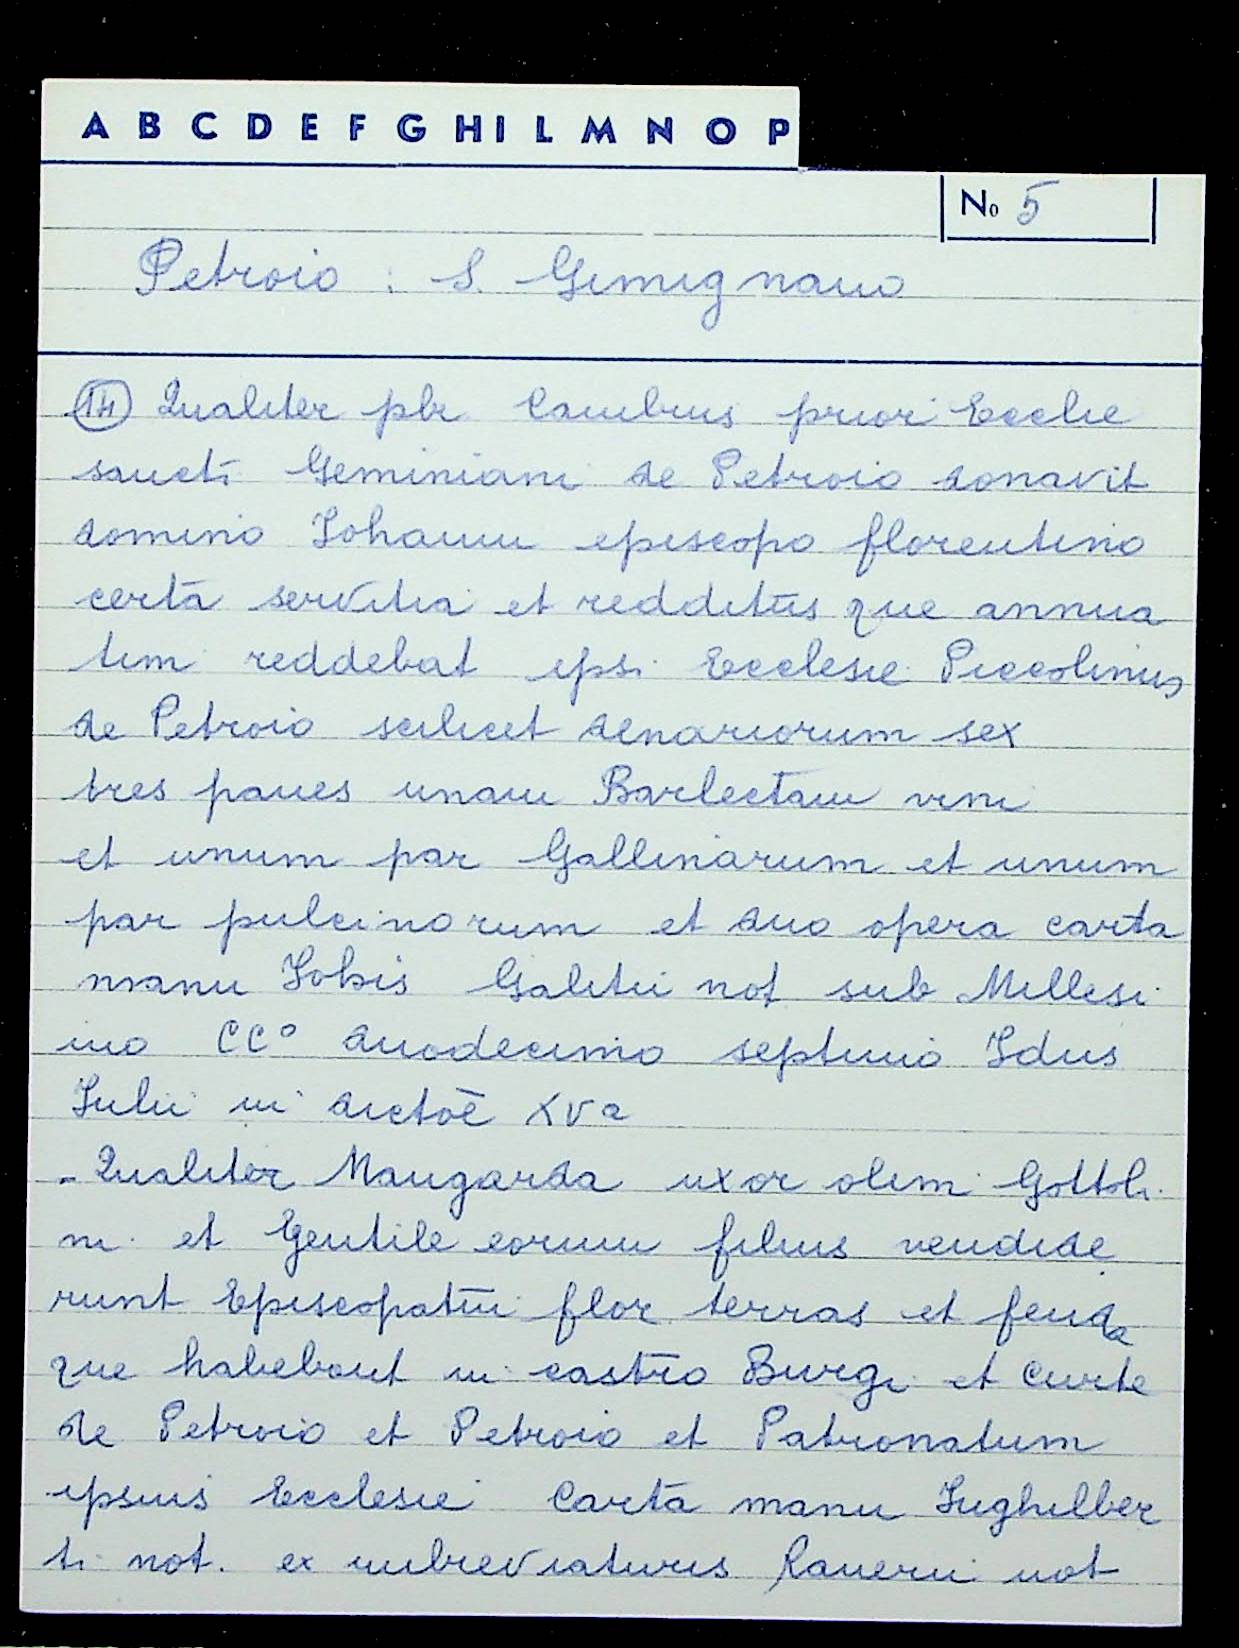 A B C D E F G H I L M N O P
No 5
Petroio : S. Gimignano
(14) Qualiter pbr Cambius prior Ecclie
sancti Geminiani de Petroio donavit
domino Iohanni episcopo florentino
certa servitia et redditus que annua
tim reddebat ipsi Ecclesie Piccolinus
de Petroio scilicet denariorum sex
tres panes unam Barlectam vini
et unum par Gallinarum et unum
par pulcinorum et duo opera carta
manu Iohis Galitii not sub Millesi
mo CCº duodecimo septimo Idus
Iulii in dictoē XVª
- Qualiter Maugarda uxor olim Gottoli
ni et Gentile eorum filius vendide
runt Episcopatui flor terras et feuda
que habebant in castro Burgi et Curte
de Petroio et Petroio et Patronatum
ipsius Ecclesie Carta manu Inghilber
ti not. ex imbreviaturis Ranerii not